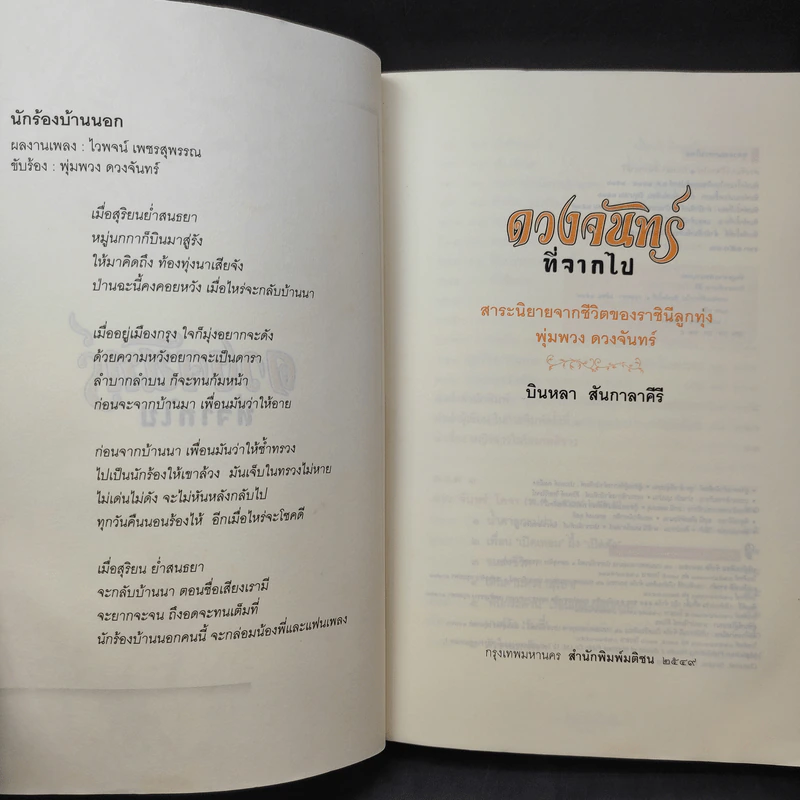 นักร้องบ้านนอก
ผลงานเพลง : ไวพจน์ เพชรสุพรรณ
ขับร้อง : พุ่มพวง ดวงจันทร์
เมื่อสุริยนย่ำสนธยา
หมู่นกกาก็บินมาสู่รัง
ให้มาคิดถึง ท้องทุ่งนาเสียจัง
ป่านฉะนี้คงคอยหวัง เมื่อไหร่จะกลับบ้านนา
เมื่ออยู่เมืองกรุง ใจก็มุ่งอยากจะดัง
ด้วยความหวังอยากจะเป็นดารา
ลำบากลำบน ก็จะทนก้มหน้า
ก่อนจะจากบ้านมา เพื่อนมันว่าให้อาย
ก่อนจากบ้านนา เพื่อนมันว่าให้ช้ำทรวง
ไปเป็นนักร้องให้เขาล้วง มันเจ็บในทรวงไม่หาย
ไม่เด่นไม่ดัง จะไม่หันหลังกลับไป
ทุกวันคืนนอนร้องไห้ อีกเมื่อไหร่จะโชคดี
เมื่อสุริยน ย่ำสนธยา
จะกลับบ้านนา ตอนชื่อเสียงเรามี
จะยากจะจน ถึงอดจะทนเต็มที่
นักร้องบ้านนอกคนนี้ จะกล่อมน้องพี่และแฟนเพลง
ดวงจันทร์
ที่จากไป
สาระนิยายจากชีวิตของราชินีลูกทุ่ง
พุ่มพวง ดวงจันทร์
บินหลา สันกาลาคีรี
กรุงเทพมหานคร สำนักพิมพ์มติชน ๒๕๔๙